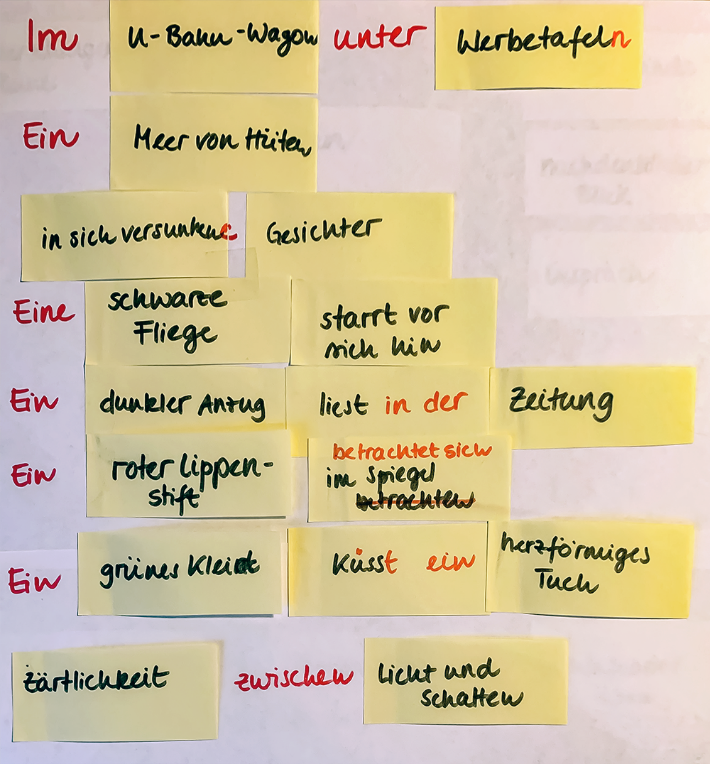 Im U-Bahn-Wagon unter Werbetafeln
Ein Meer von Hüten
in sich versunkene Gesichter
Eine schwarze Fliege starrt vor sich hin
Ein dunkler Anzug liest in der Zeitung
Ein roter Lippen-stift betrachtet sich im Spiegel betrachten
Ein grünes Kleid küsst ein herzförmiges Tuch
Zärtlichkeit zwischen Licht und Schatten